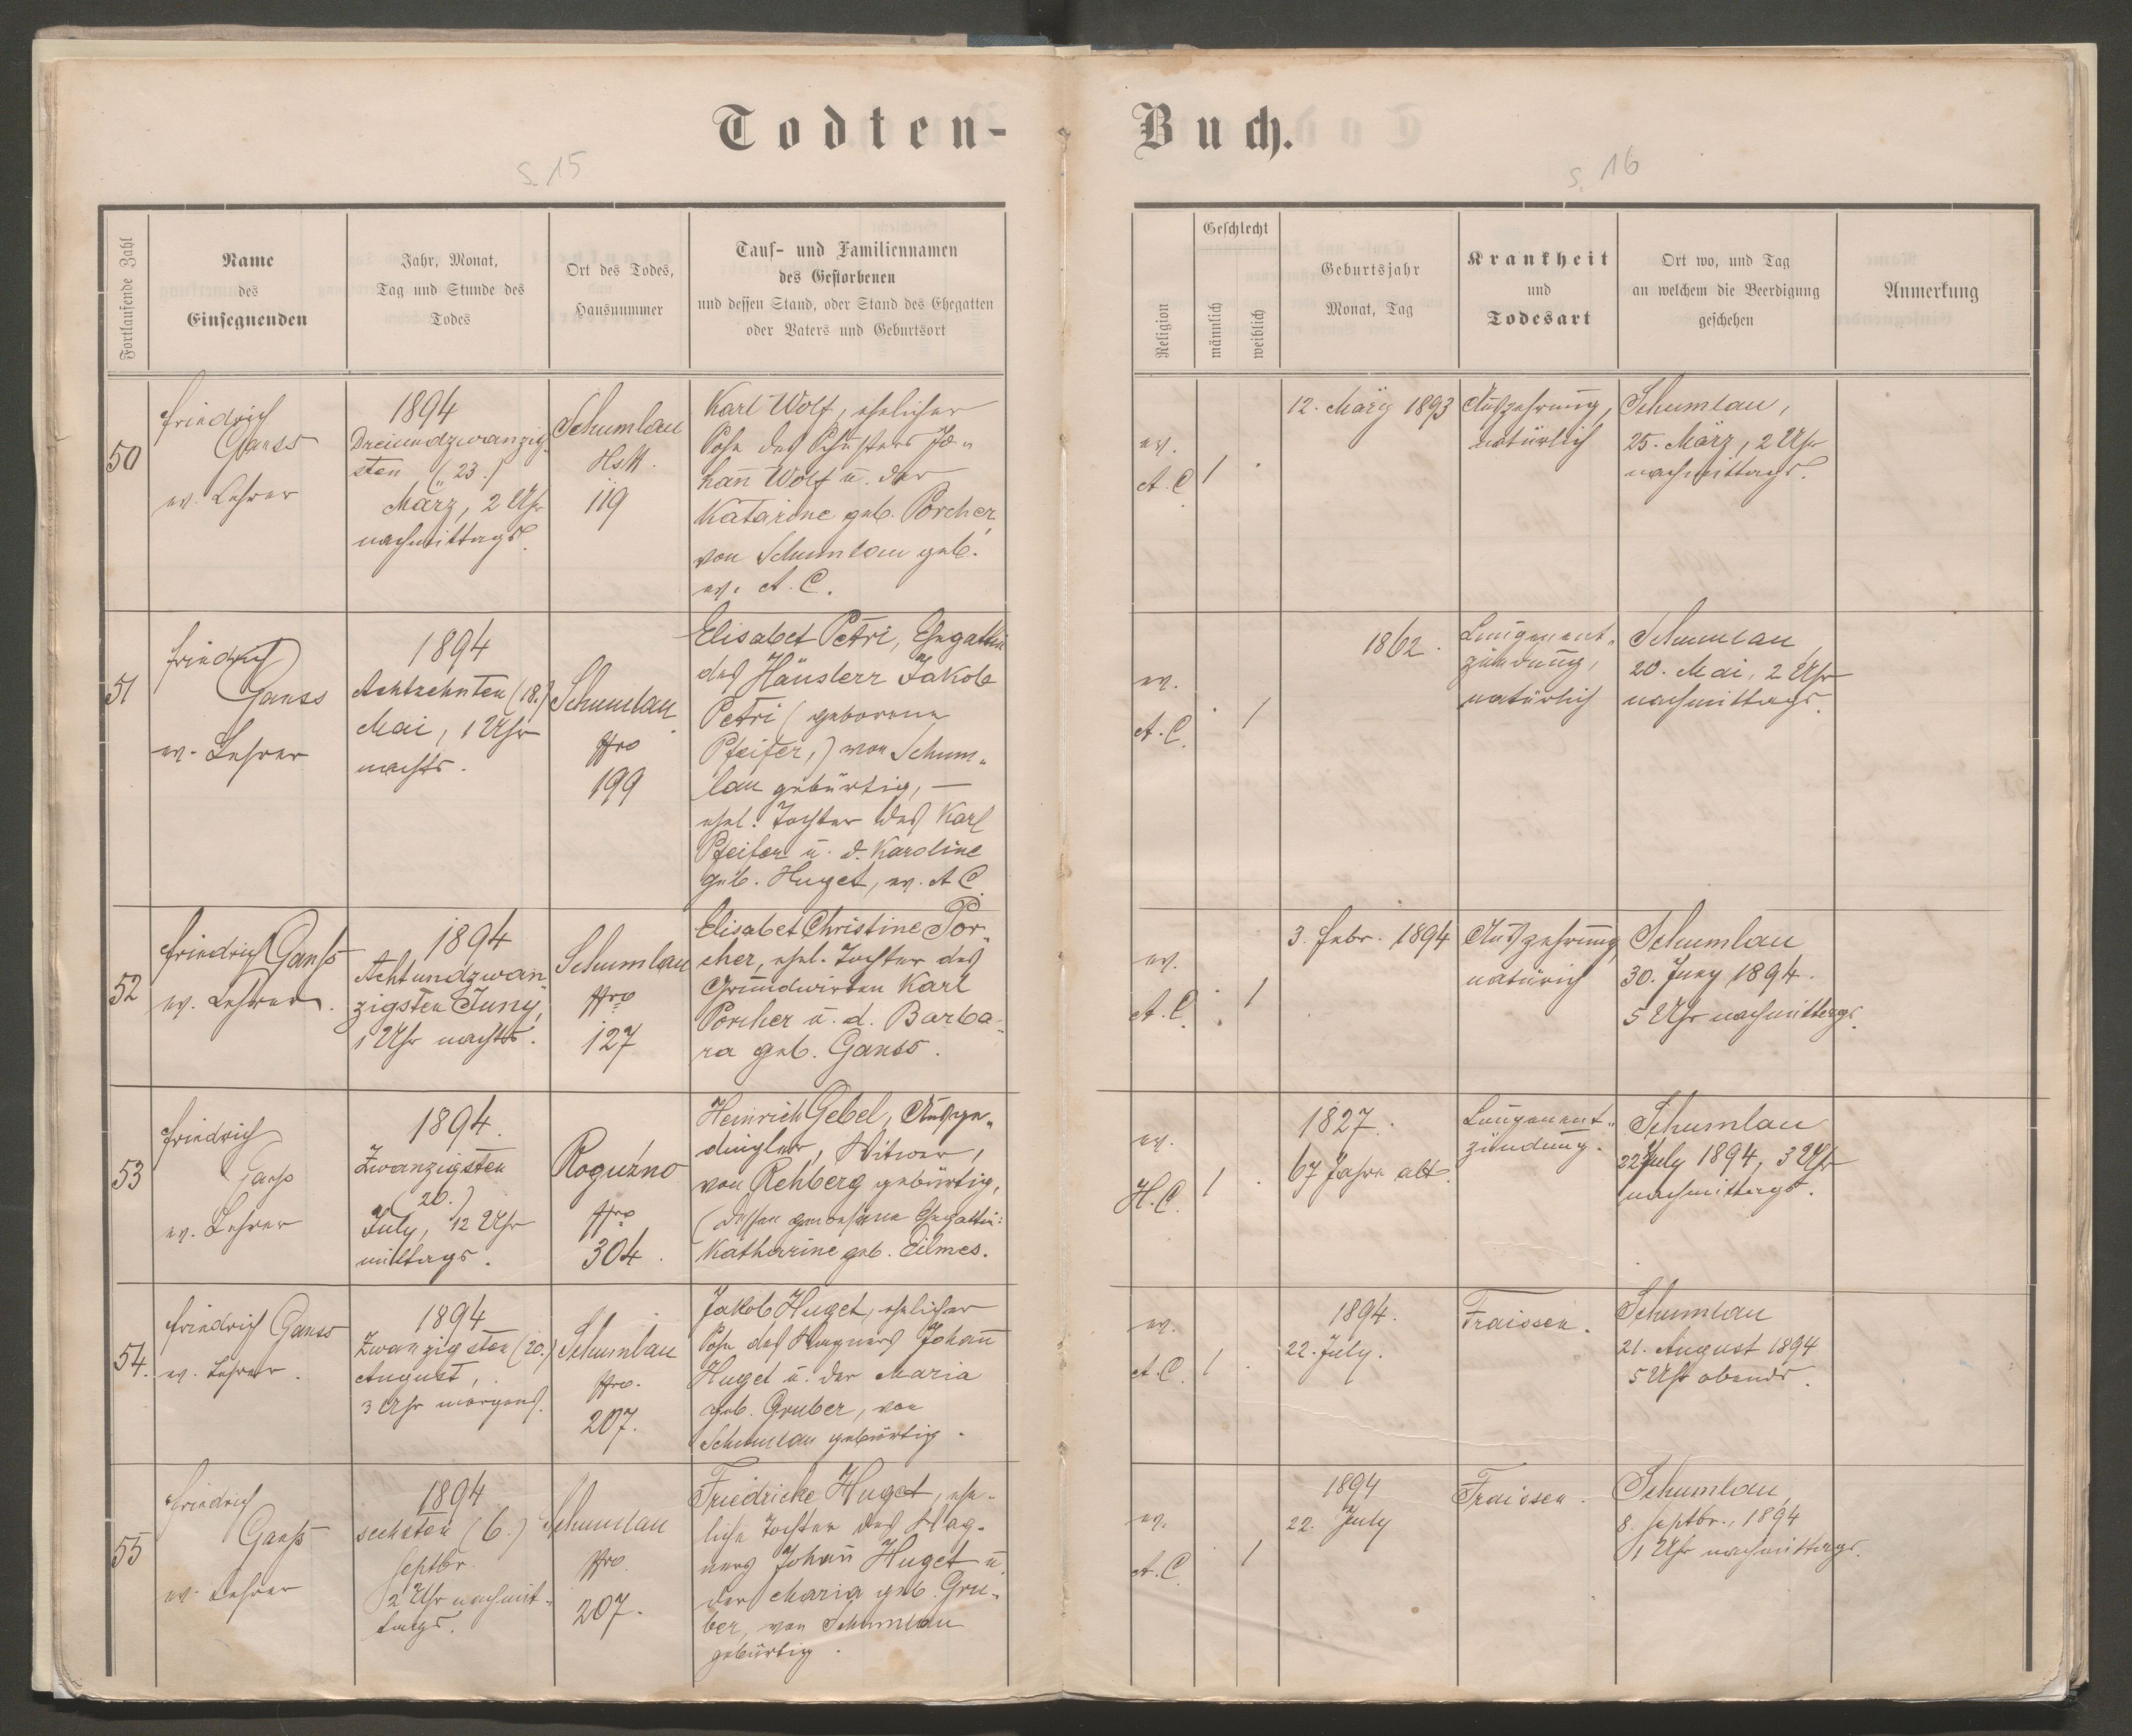 Todten-Buch.
S. 15
S. 16
Fortlaufende Zahl
Name
des
Einsegnenden
Jahr, Monat,
Tag und Stunde des
Todes
Ort des Todes,
Hausnummer
Tauf- und Familiennamen
des Gestorbenen
und dessen Stand, oder Stand des Ehegatten
oder Vaters und Geburtsort
Religion
Geschlecht
männlich
weiblich
Geburtsjahr
Monat, Tag
Krankheit
und
Todesart
Ort wo, und Tag
an welchem die Beerdigung
geschehen
Anmerkung
50
Friedrich
Ganss
ev. Lehrer
1894
Dreiundzwanzig-
sten (23.)
März, 2 Uhr
nachmittags.
Schumlau
HsN.
119
Karl Wolf, ehelicher
Sohn des Schusters Jo-
han̅ Wolf u. der
Katarine geb. Porcher,
von Schumlau geb.
ev. A. C.
ev.
A. C.
1
12. März 1893
Auszehrung,
natürlich
Schumlau,
25. März, 2 Uhr
nachmittags.
51
Friedrich
Ganss
ev. Lehrer
1894
Achtzehnten (18.)
Mai, 1 Uhr
nachts.
Schumlau
Nro
199
Elisabet Petri, Ehegattin
des Häuslerr Jakob
Petri (geborene
Pfeifer,) von Schum-
lau gebürtig, —
ehel. Tochter des Karl
Pfeifer u. d. Karoline
geb. Huget, ev. A C.
ev.
A. C.
1
1862.
Lungenent-
zündung,
natürlich
Schumlau
20. Mai, 2 Uhr
nachmittags.
52
Friedrich Ganß
ev. Lehrer.
1894
Achtundzwan-
zigsten Juny,
1 Uhr nachts.
Schumlau
Nro
127
Elisabet Christine Por-
cher, ehel. Tochter des
Grundwirten Karl
Porcher u. d. Barba-
ra geb. Ganss.
ev.
A. C.
1
3. Febr. 1894
Auszehrung,
natürich
Schumlau
30. Juny 1894.
5 Uhr nachmittags.
53
Friedrich
Ganß
ev. Lehrer
1894.
Zwanzigsten
(20.)
July, 12 Uhr
mittags.
Roguźno
Nro
304.
Heinrich Gebel, Ausge-
dingler, Witwer,
von Rehberg gebürtig,
(dessen gewesene Ehegattin:
Katharine geb. Eilmes.
ev.
H. C.
1
1827.
67 Jahre alt.
Lungenent-
zündung.
Schumlau
22 July 1894, 3 Uhr
nachmittags.
54.
Friedrich Ganss
ev. Lehrer.
1894
Zwanzigsten (20.)
August,
3 Uhr morgens.
Schumlau
Nro.
207.
Jakob Huget, ehelicher
Sohn des Wagners Johan̅
Huget u. der Maria
geb. Gruber, von
Schumlau gebürtig.
ev.
A. C.
1
1894.
22. July.
Fraissen.
Schumlau
21. August 1894
5 Uhr abends.
55
Friedrich
Ganß
ev. Lehrer
1894
sechsten (6.)
Septbr.
2 Uhr nachmit-
tags.
Schumlau
Nro.
207.
Friedricke Huget, ehe-
liche Tochter des Wag-
ners Johan̅ Huget u.
der Maria geb. Gru-
ber, von Schumlau
gebürtig.
ev.
A. C.
1
1894
22. July
Fraissen.
Schumlau,
8. Septbr., 1894
1 Uhr nachmittags.